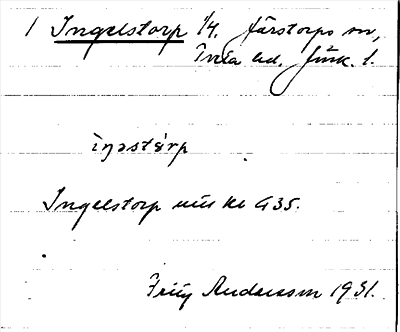 1 Ingelstorp 1/4. Järstorps sn,
Tveta hd. Jönk. l.
iŋəstårp
Ingelstorp utt kl G35.
Fritz Andersson 1931.